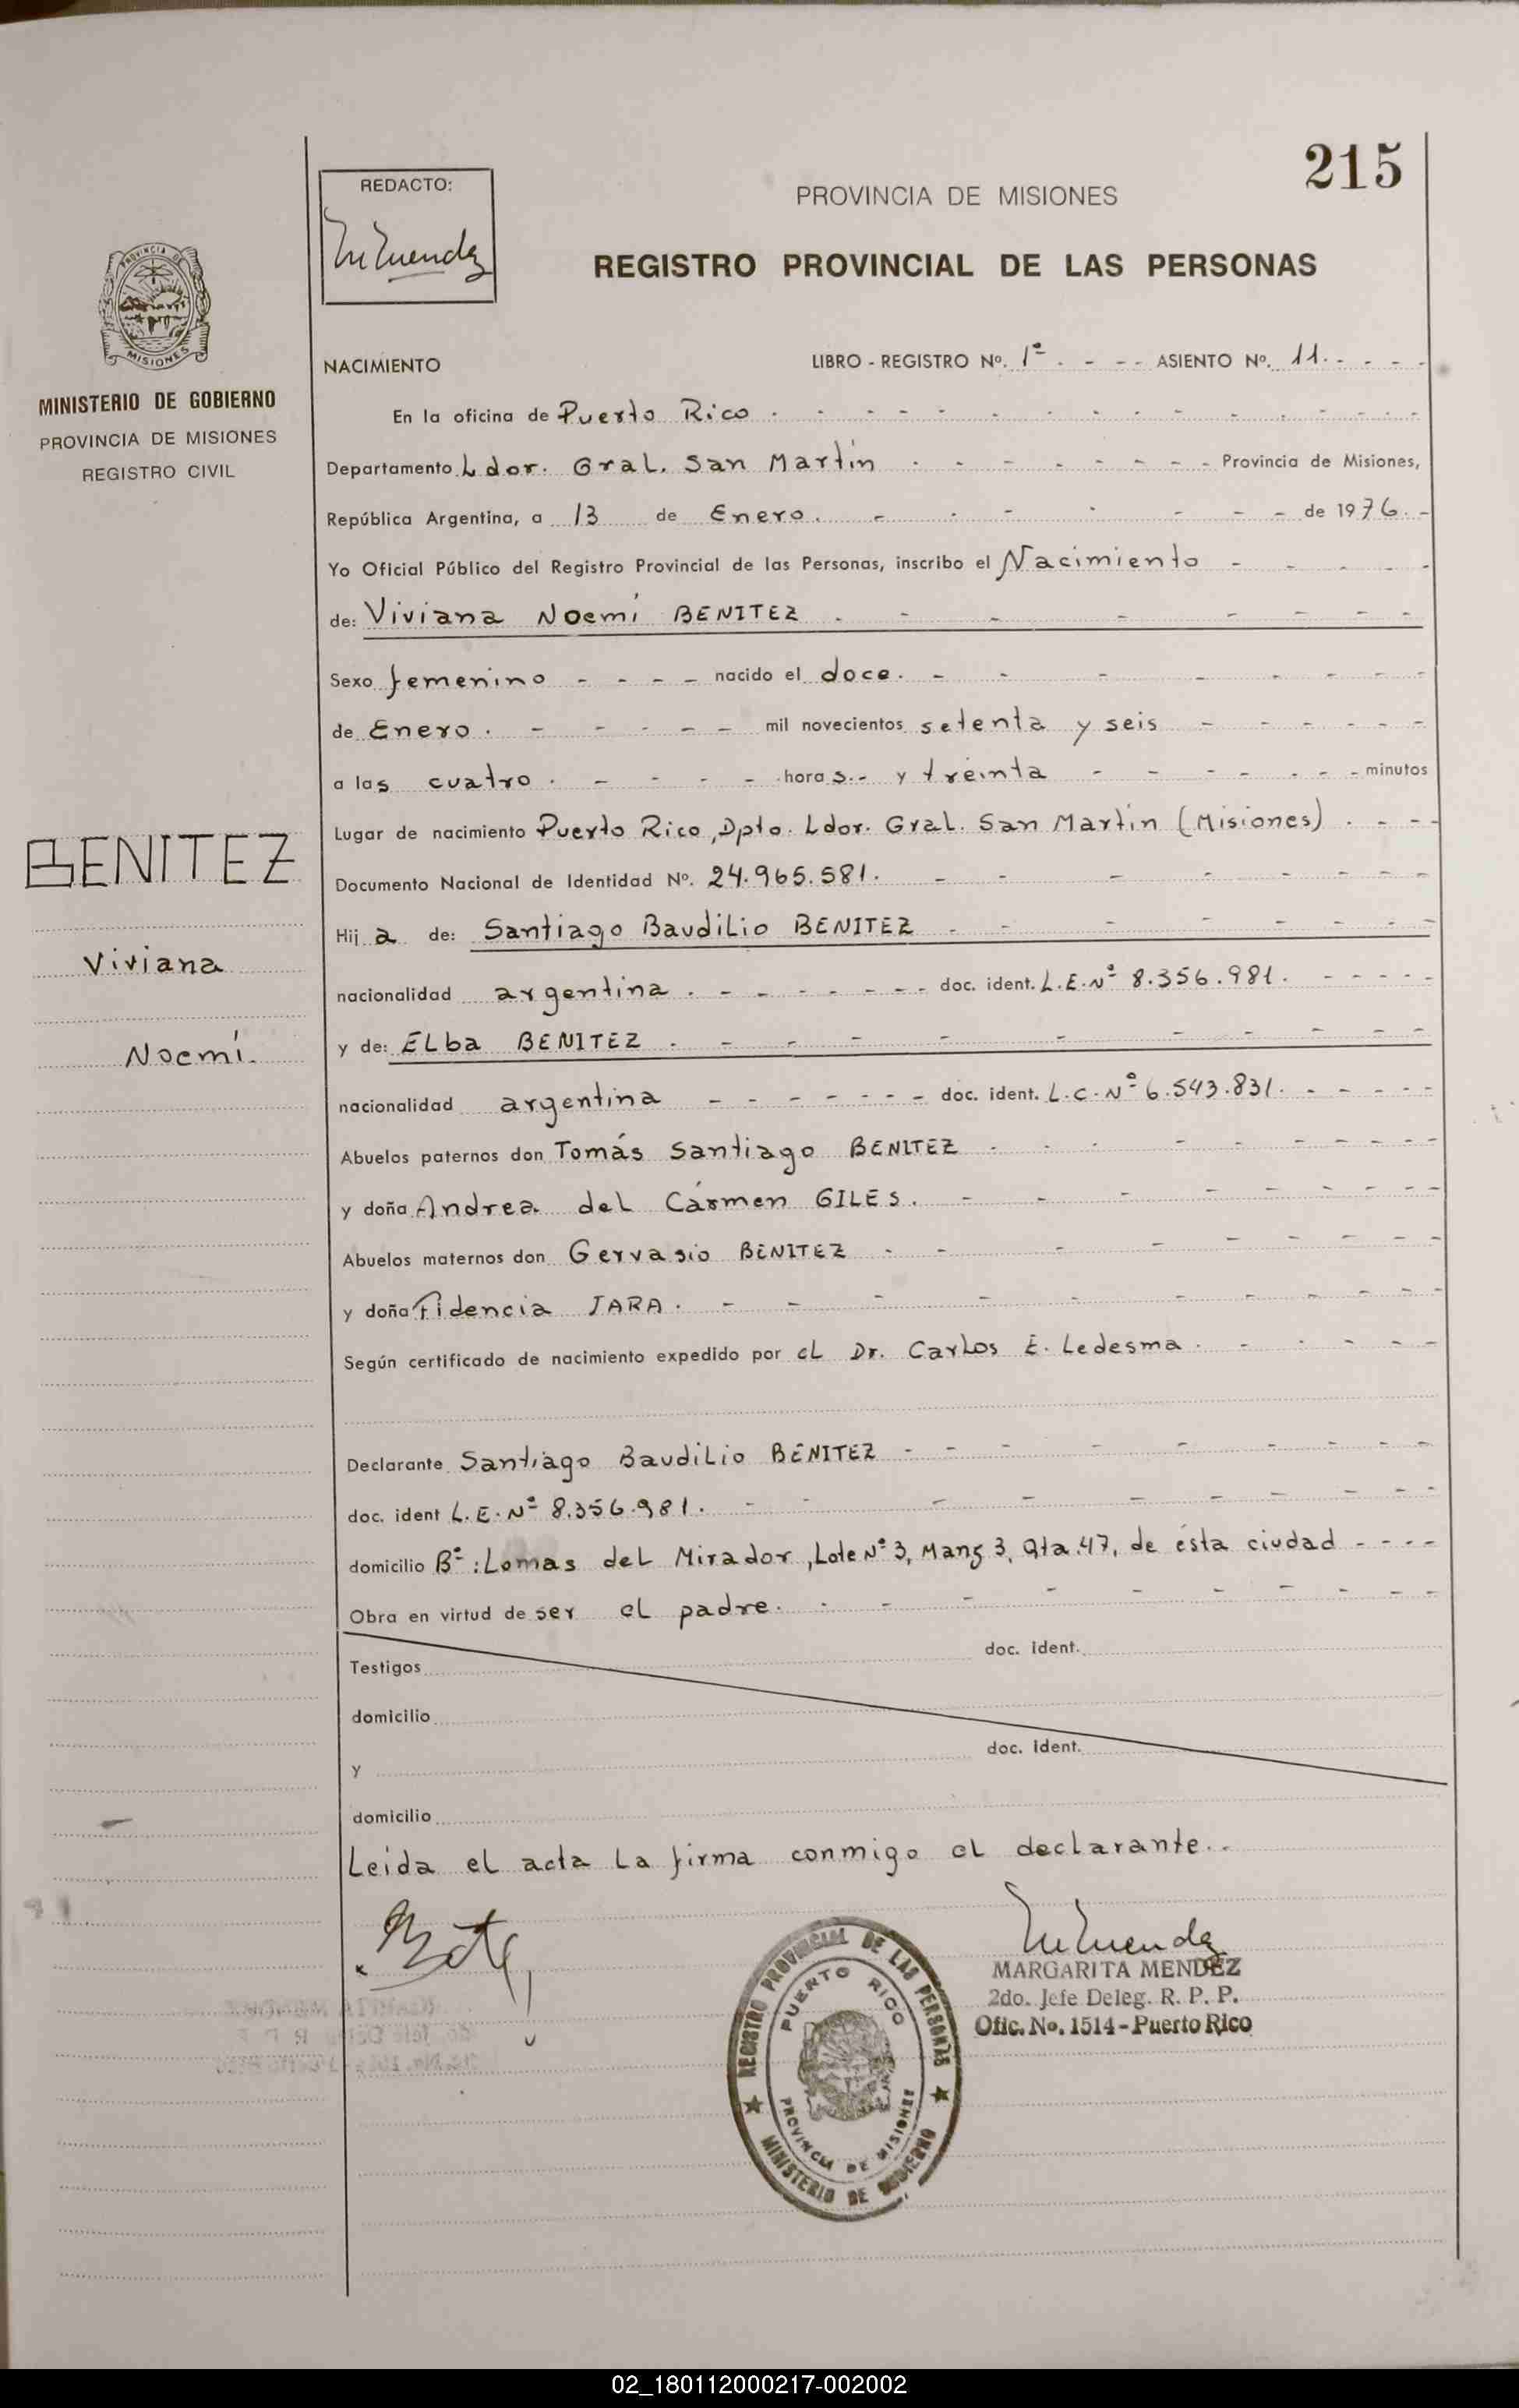 215
REDACTO:
PROVINCIA DE MISIONES
REGISTRO PROVINCIAL DE LAS PERSONAS
PROVINCIA DE
MISIONES
MINISTERIO DE GOBIERNO
PROVINCIA DE MISIONES
REGISTRO CIVIL
BENITEZ
Viviana
Noemí.
NACIMIENTO LIBRO - REGISTRO Nº. 1º . - - - ASIENTO Nº. 11. - - - -
En la oficina de Puerto Rico . - - - - - - - - - - - -
Departamento Ldor. Gral. San Martín . - - - - - - - Provincia de Misiones,
República Argentina, a 13 de Enero. - - - - - - - de 1976. -
Yo Oficial Público del Registro Provincial de las Personas, inscribo el Nacimiento - - - - -
de: Viviana Noemí BENITEZ . - - - - - - -
Sexo femenino - - - - nacido el doce. - - - - - - - -
de Enero . - - - - - mil novecientos setenta y seis - - - - - -
a las cuatro . - - - - hora s.- y treinta - - - - - - - minutos
Lugar de nacimiento Puerto Rico, Dpto. Ldor. Gral. San Martín (Misiones) . - - -
Documento Nacional de Identidad Nº. 24.965.581. - - - - - - - -
Hij a de: Santiago Baudilio BENITEZ - - - - - - - -
nacionalidad argentina . - - - - - - - doc. ident. L.E.Nº 8.356.981. - - - - -
y de: ELba BENITEZ . - - - - - - - - -
nacionalidad argentina - - - - - - - doc. ident. L.C.Nº 6.543.831. - - - - -
Abuelos paternos don Tomás Santiago BENITEZ - - - - - - - - -
y doña Andrea del Cármen GILES. - - - - - - - - -
Abuelos maternos don Gervasio BENITEZ - - - - - - - -
y doña Fidencia JARA. - - - - - - - - - -
Según certificado de nacimiento expedido por el Dr. Carlos E. Ledesma . - - - - -
Declarante Santiago Baudilio BENITEZ - - - - - - - - -
doc. ident L.E.Nº 8.356.981. - - - - - - - - - -
domicilio Bº: Lomas del Mirador, Lote Nº 3, Manz 3, Qta.47, de ésta ciudad - - - -
Obra en virtud de ser el padre. . - - - - - - - -
Testigos doc. ident.
domicilio
y doc. ident.
domicilio
Leída el acta la firma conmigo el declarante..
MARGARITA MENDEZ
2do. Jefe Deleg. R. P. P.
Ofic. No. 1514 - Puerto Rico
REGISTRO PROVINCIAL DE LAS PERSONAS
PUERTO RICO
PROVINCIA DE MISIONES
MINISTERIO DE GOBIERNO
02_180112000217-002002